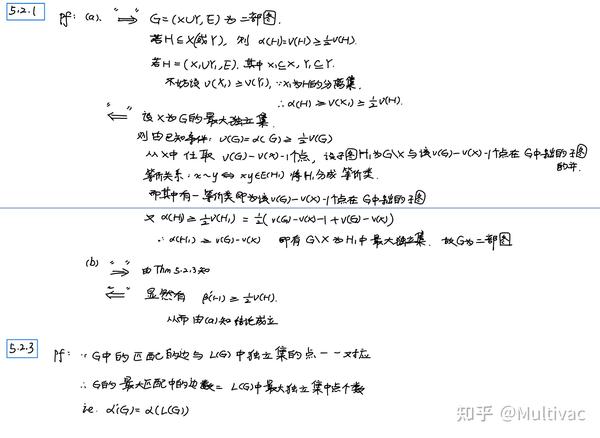 5.2.1 pf: (a) "⟹" G=(X∪Y, E)为二部图.
若H⊆X(或Y), 则 α(H)=v(H)≥½v(H).
若H=(X₁∪Y₁, E). 其中 X₁⊆X, Y₁⊆Y.
不妨设 v(X₁)≥v(Y₁), ∵X₁为H的分离集.
∴α(H)≥v(X₁)≥½v(H).
"⟸" 设X为G的最大独立集.
则由已知条件: v(G)=α(G)≥½v(G)
从X中任取 v(G)-v(X)-1个点, 设子图H₁为G\X与该v(G)-v(X)-1个点在G中
的并.
等价关系: x~y ⟺ xy∈E(H₁) 将H₁分成等价类.
而其中有一等价类即为该v(G)-v(X)-1个点在G中
又 α(H₁)≥½v(H₁)=½(v(G)-v(X)-1+v(G)-v(X))
∴α(H₁)≥v(G)-v(X) 即有G\X为H₁中最大独立集. 故G为二部图
(b) "⟹" 由Thm 5.2.3知
"⟸" 显然有 β'(H)≥½v(H).
从而由(a)知结论成立
5.2.3 pf: ∵G中的匹配的边与L(G)中独立集的点一一对应
∴G的最大匹配中的边数=L(G)中最大独立集中点个数
ie. α'(G)=α(L(G))
知乎 @Multivac